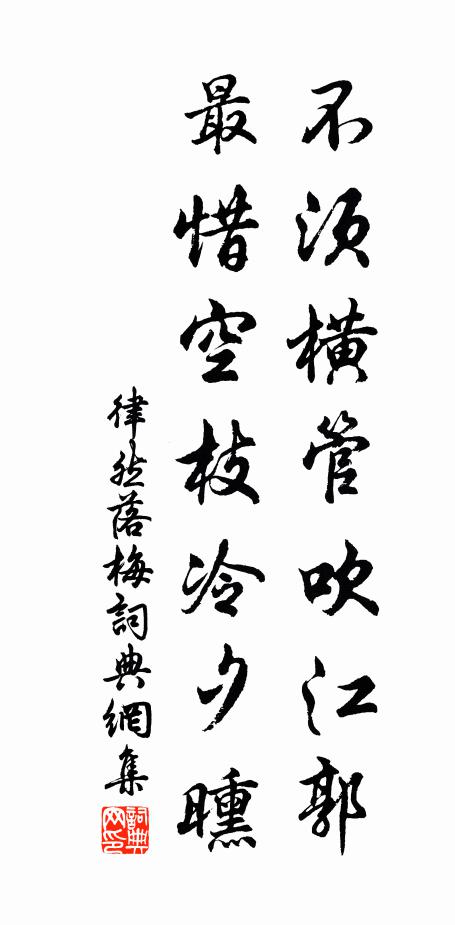 不须横管吹江郭
最惜空枝冷夕曛
律然落梅詞典網集
詞典网印